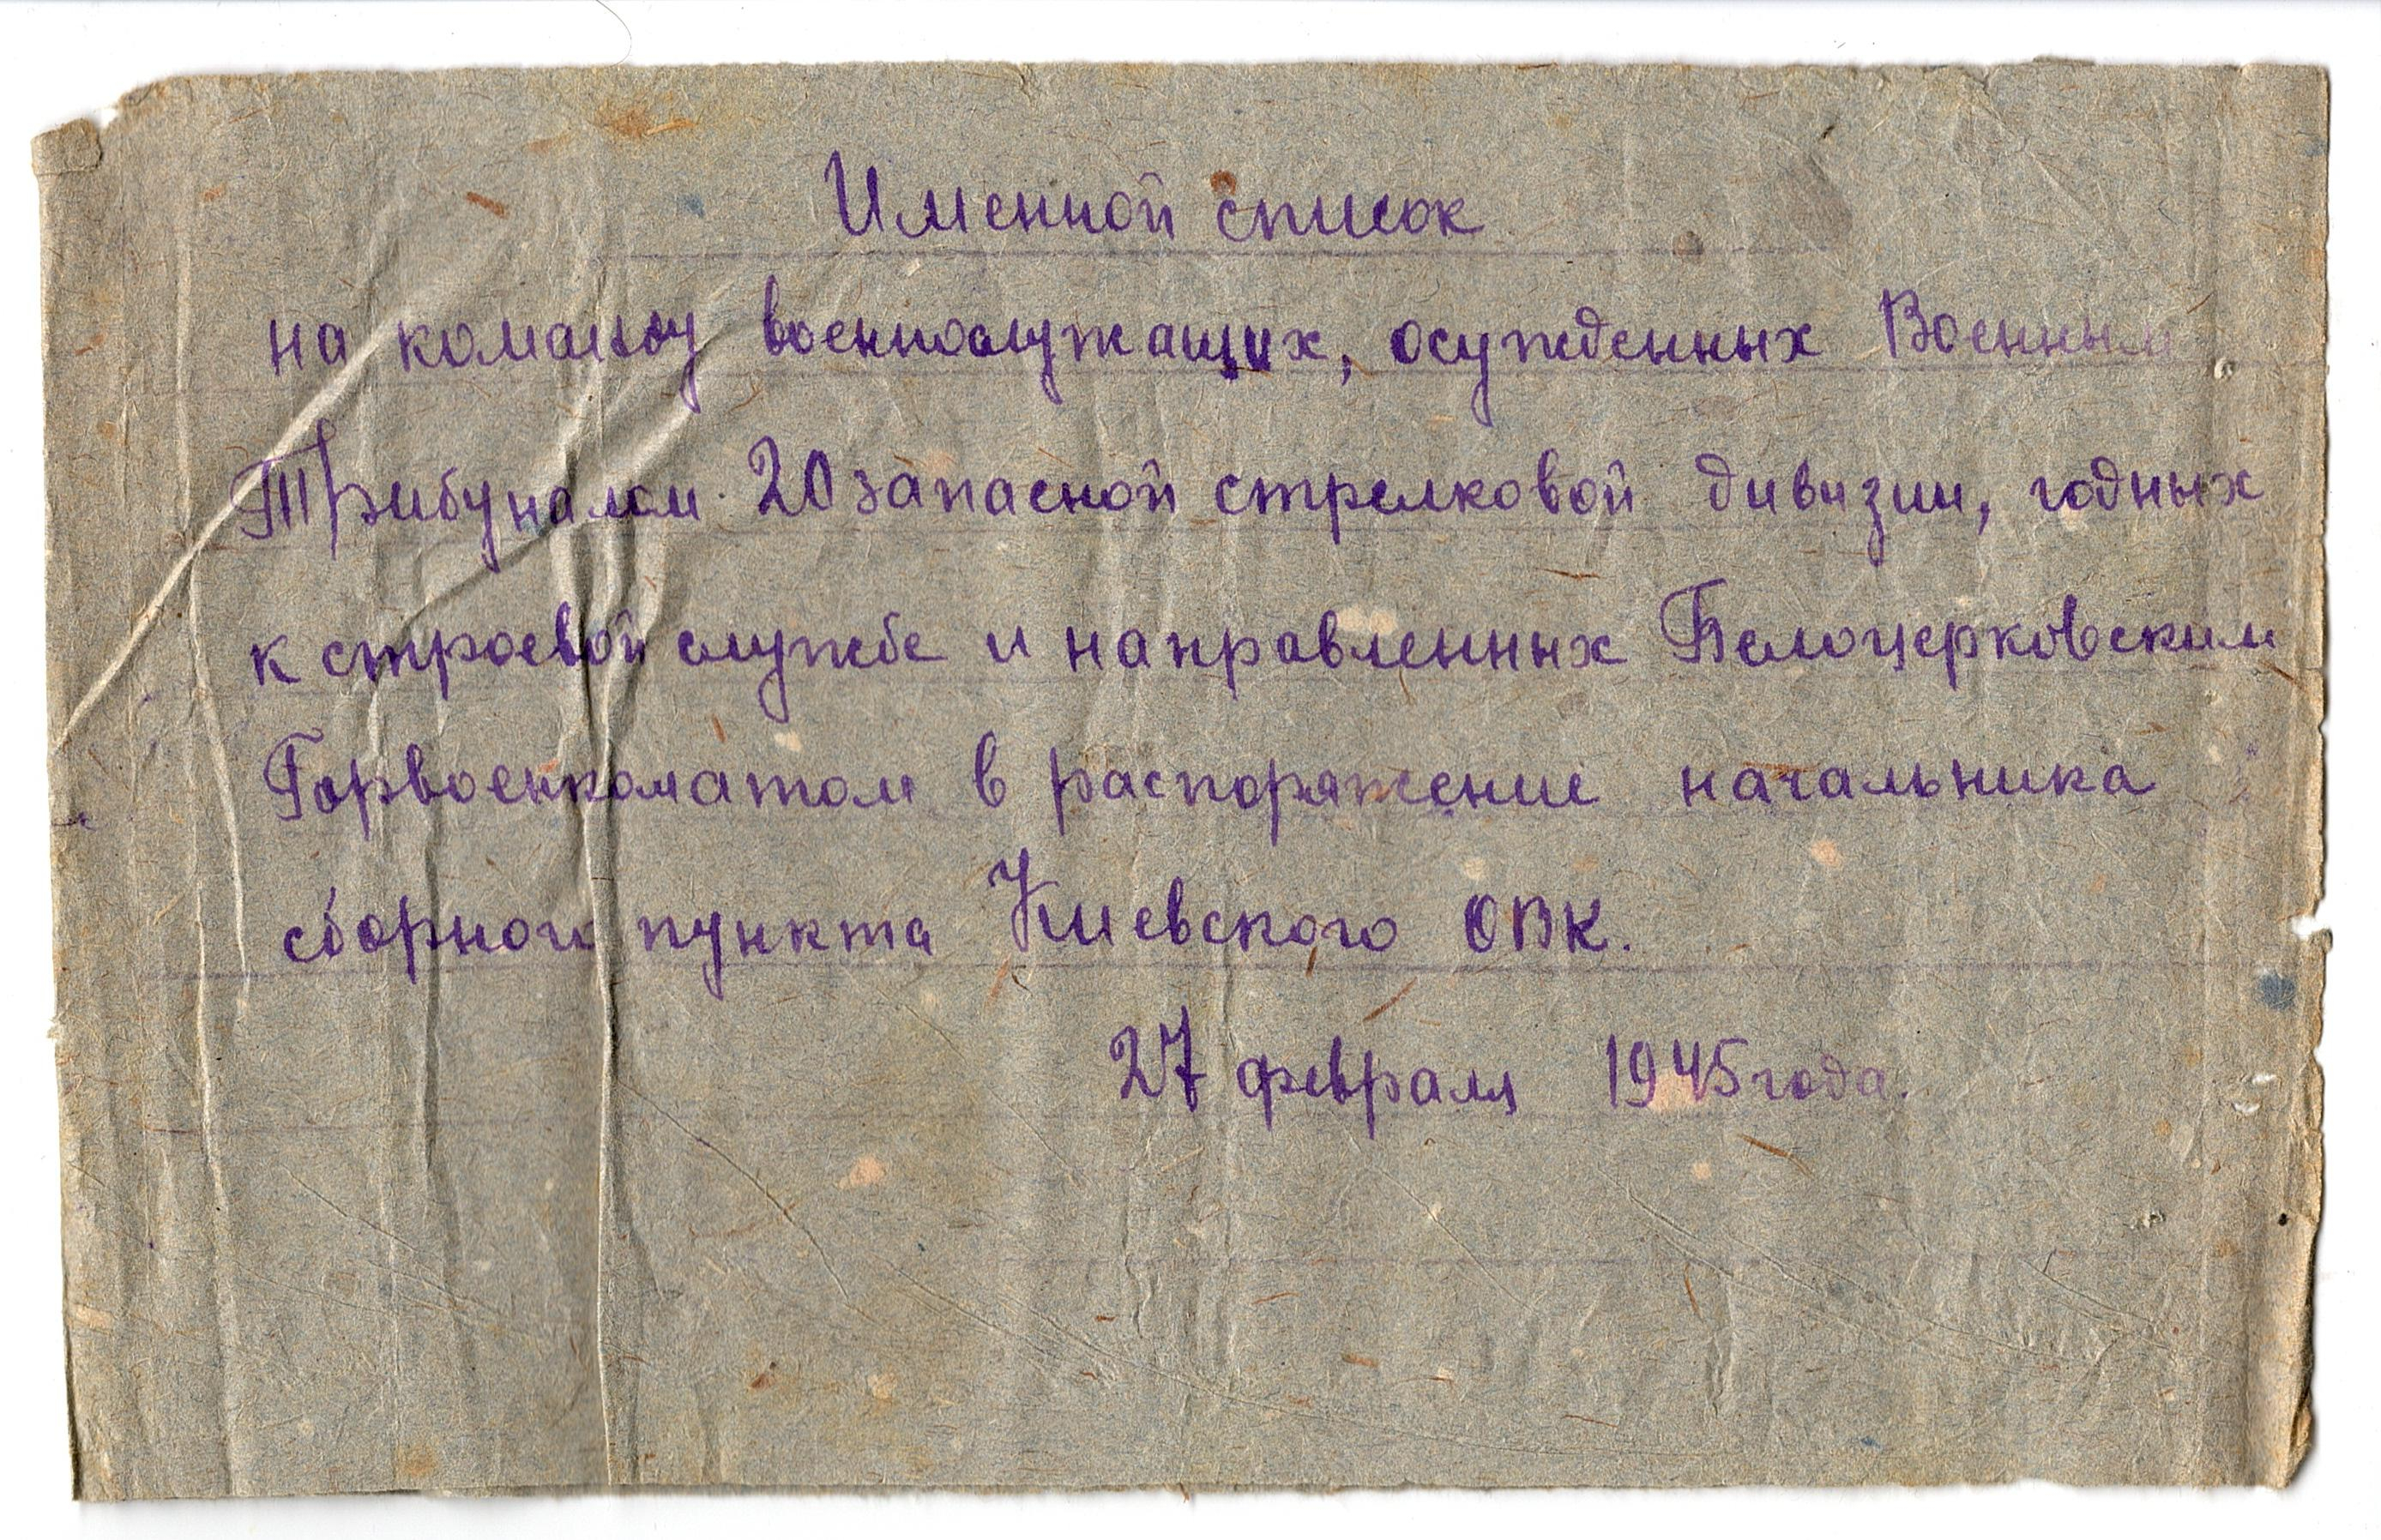 Именной список
на команду военнослужащих, осужденных Военным
Трибуналом 20 запасной стрелковой дивизии, годных
к строевой службе и направленных Белоцерковским
Горвоенкоматом в распоряжение начальника
сборного пункта Киевского ОВК.
27 февраля 1945 года.